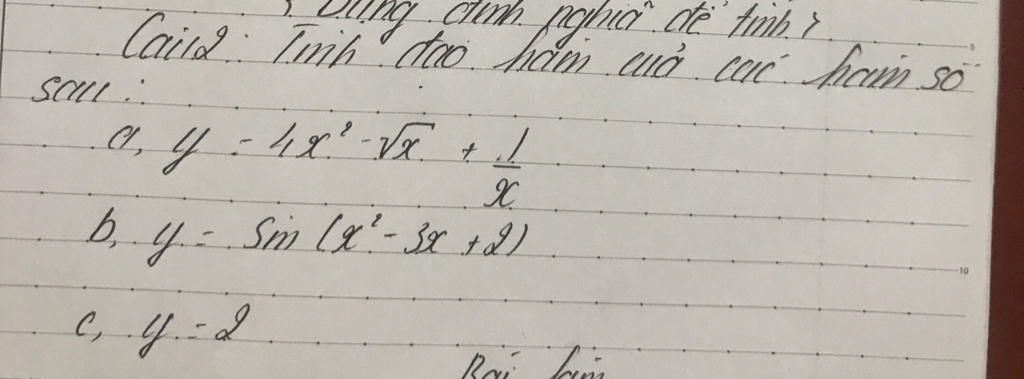 Dùng định nghĩa để tính?
Câu 2: Tính đạo hàm của các hàm số
sau:
a, y = 4x² - √x + 1/x
b, y = sin (x² - 3x + 2)
c, y = 2
Bài làm